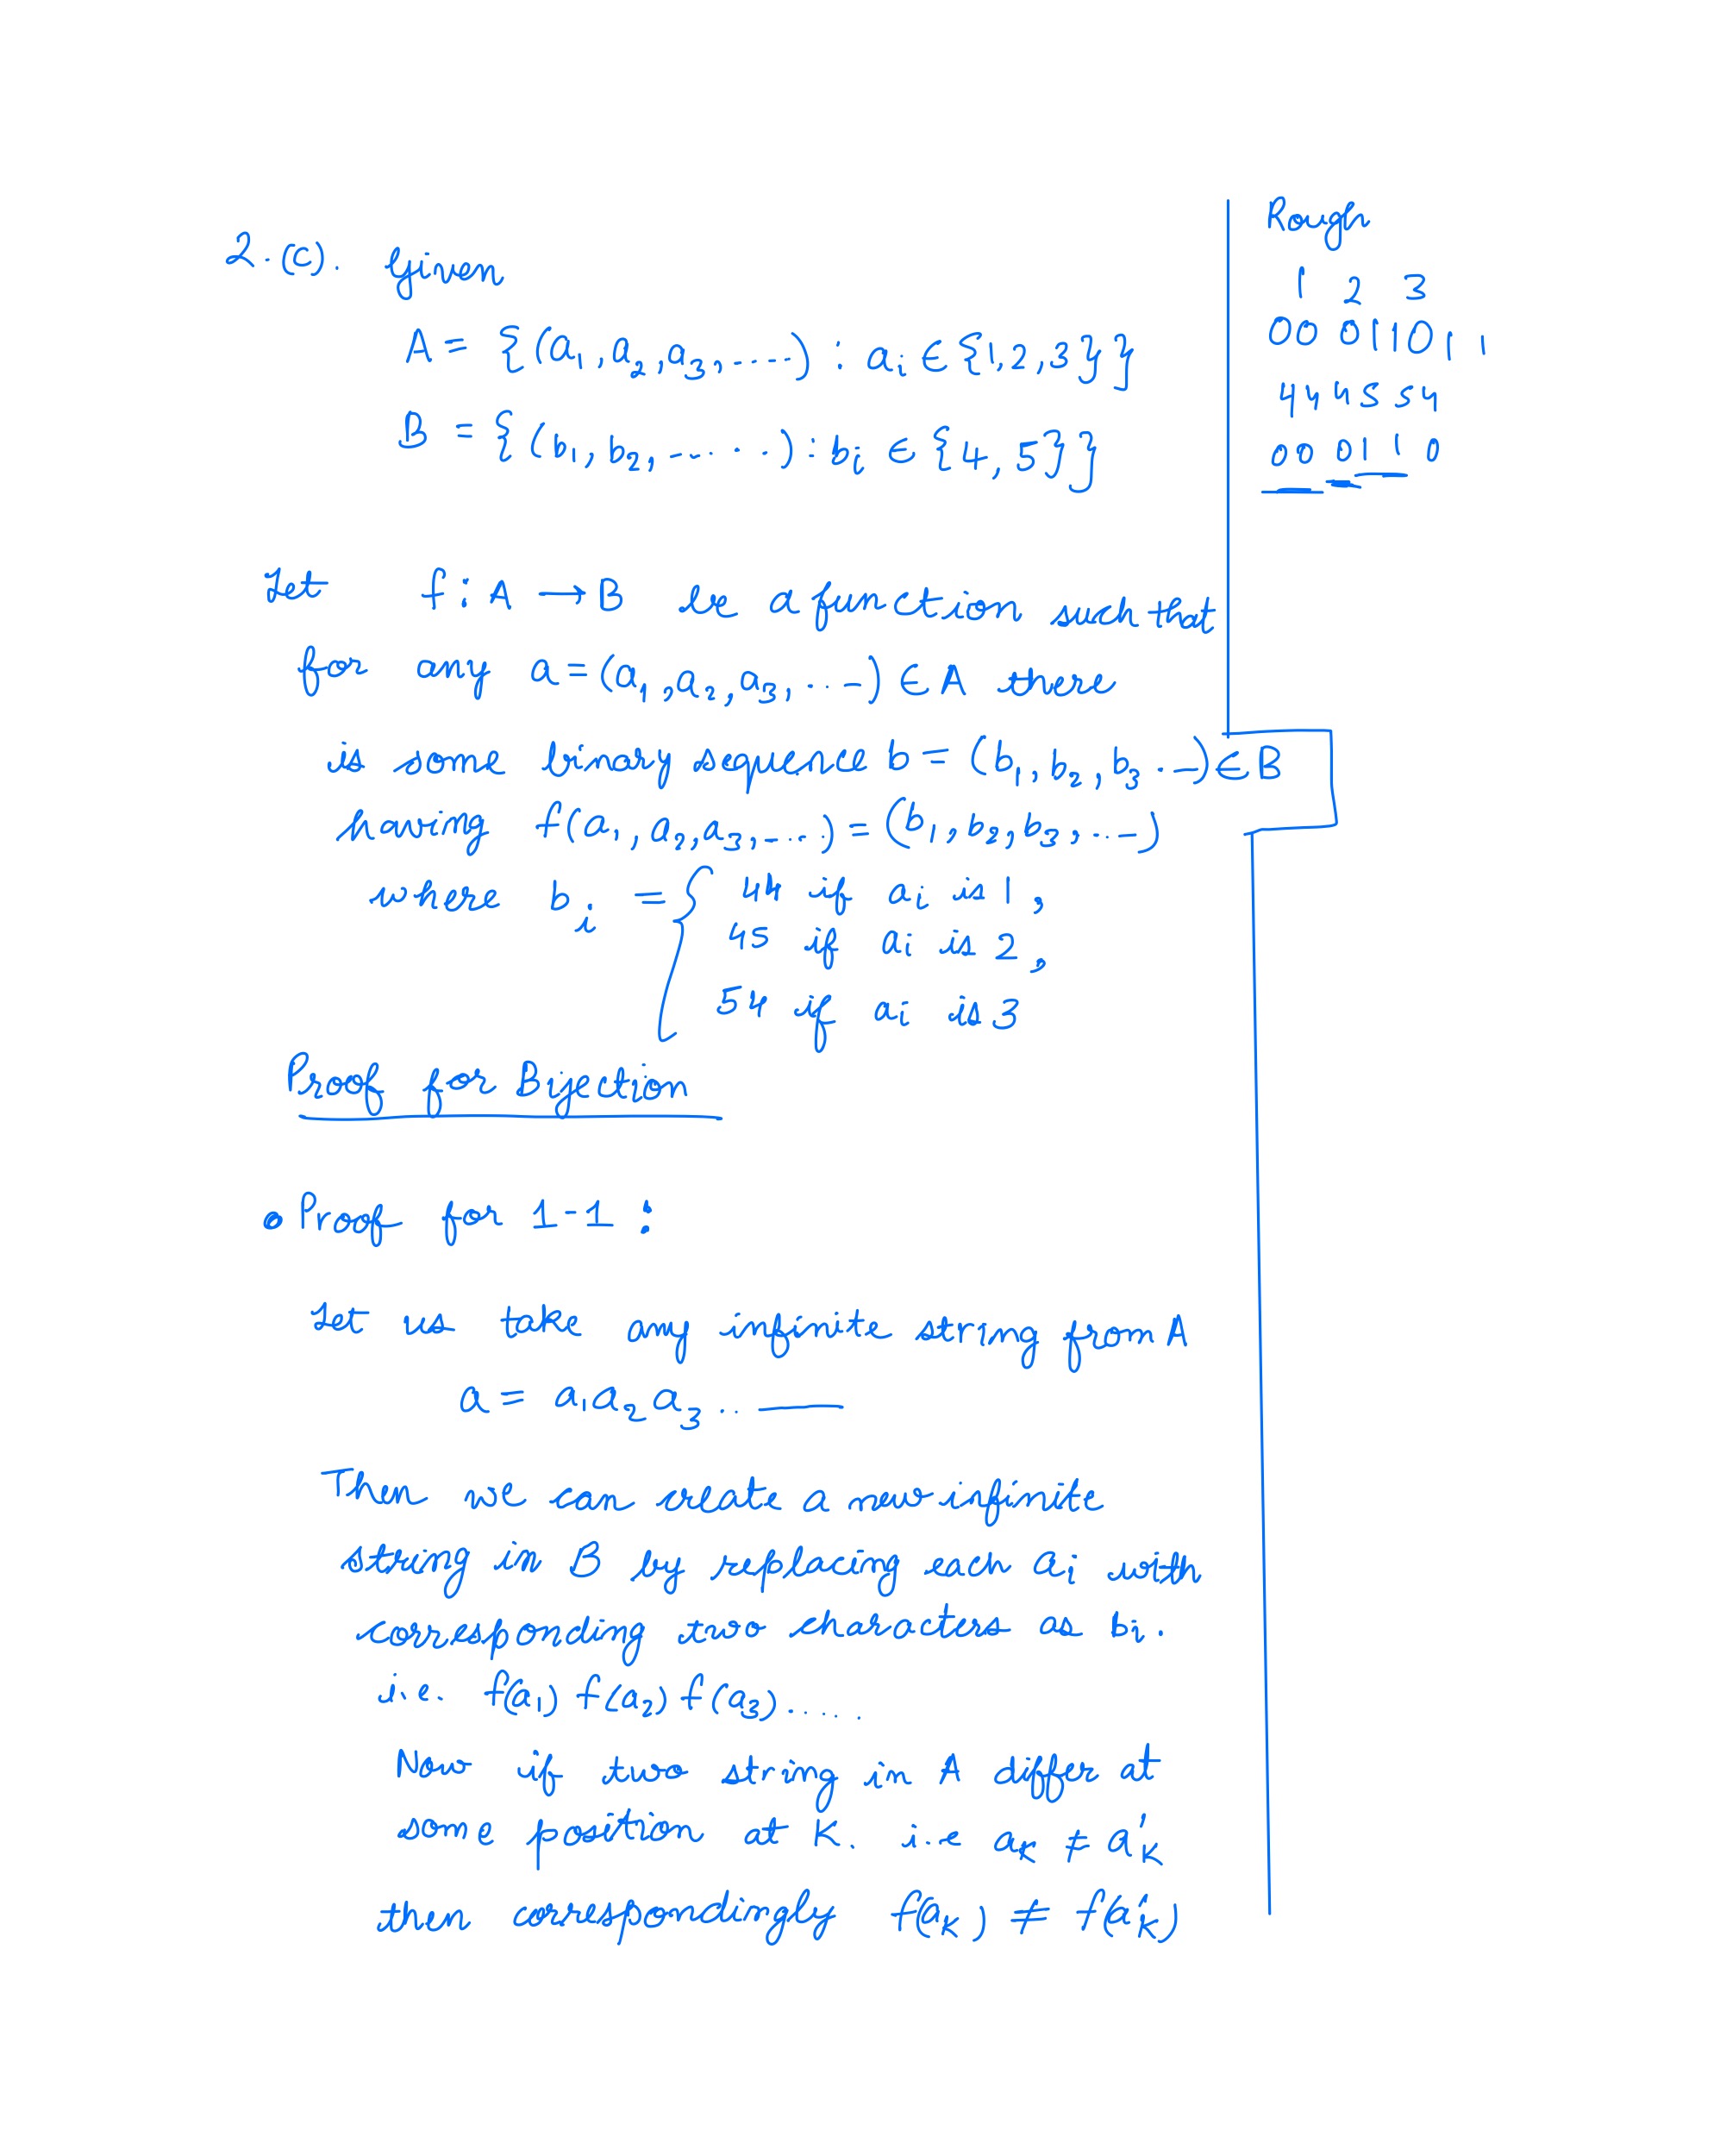 2.(c). Given
A = {(a₁, a₂, a₃, ....) : aᵢ ∈ {1,2,3}}
B = {(b₁, b₂, .....) : bᵢ ∈ {4, 5}}
Let f : A → B be a function such that
for any a = (a₁, a₂, a₃, ...) ∈ A there
is some binary sequence b = (b₁, b₂, b₃ ...) ∈ B
having f(a₁, a₂, a₃, ....) = (b₁, b₂, b₃, ...)
where bᵢ = { 44 if aᵢ is 1,
45 if aᵢ is 2,
54 if aᵢ is 3
Proof for Bijection
• Proof for 1-1 :
Let us take any infinite string from A
a = a₁a₂a₃.. —
Then we can create a new infinite
string in B by replacing each aᵢ with
corresponding two characters as bᵢ.
i.e. f(a₁) f(a₂) f(a₃).....
Now if two string in A differ at
some position at K. i.e aₖ ≠ a'ₖ
then correspondingly f(aₖ) ≠ f(a'ₖ)
Rough
1 2 3
00 011011
444554
000110